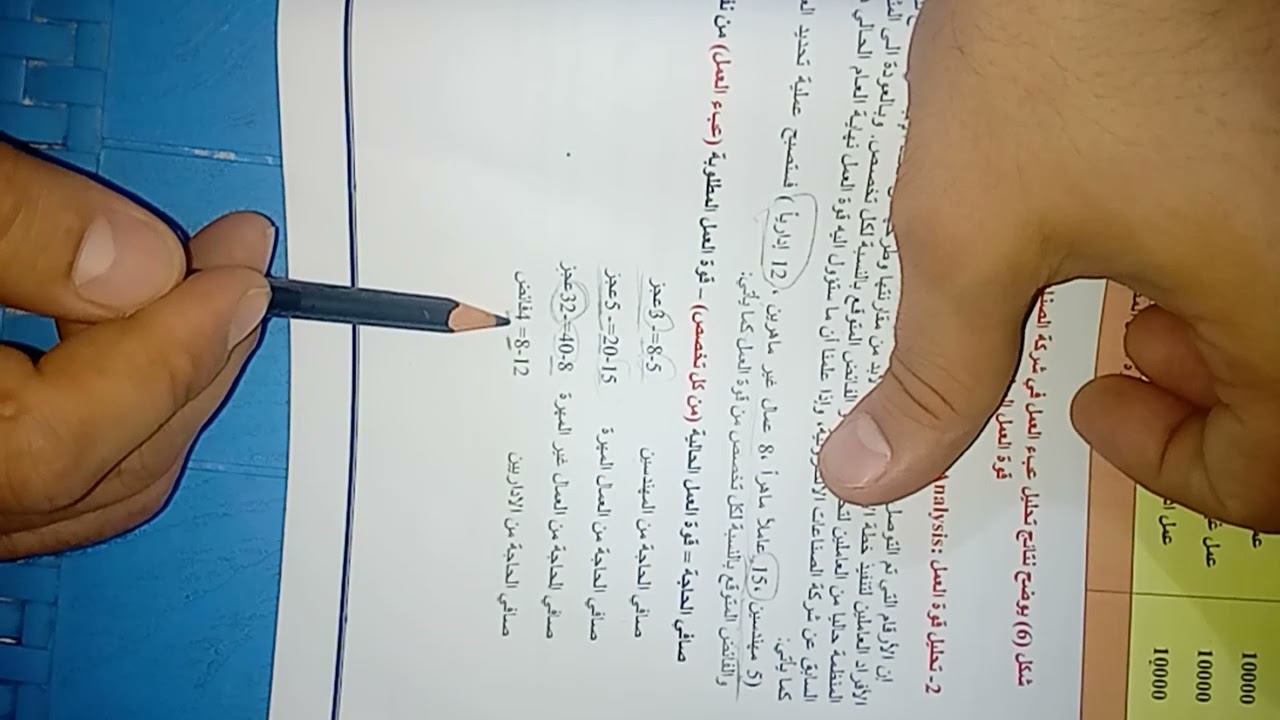 10000
10000
10000
عمل
شكل (6) يوضح نتائج تحليل عبء العمل في شركة
قوة العمل
2- تحليل قوة العمل : Analysis
ان الأرقام التي تم التوصل
بد من مقارنتها
الأفراد العاملين لتنفيذ خطة
الفائض المتوقع بالنسبة لكل تخصص. وبالعودة الى
المنظمة حاليا من العاملين
وإذا علمنا أن ما ستؤول اليه قوة العمل نهاية العام الحالي
السابق عن شركة الصناعات
كما يأتي:
(5 مهندسين ،15 عاملاً ماهراً ،8 عمال غير ماهرين ، 12 إدارياً ) فتصبح عملية تحديد
والفائض المتوقع بالنسبة لكل تخصص من قوة العمل كما يأتي:
صافي الحاجة = قوة العمل الحالية (من كل تخصص) – قوة العمل المطلوبة (عبء العمل) من
صافي الحاجة من المهندسين 5-8=-3 عجز
صافي الحاجة من العمال المهرة 15-20=-5 عجز
صافي الحاجة من العمال غير المهرة 8-40=-32 عجز
صافي الحاجة من الاداريين 12-8=4 فائض